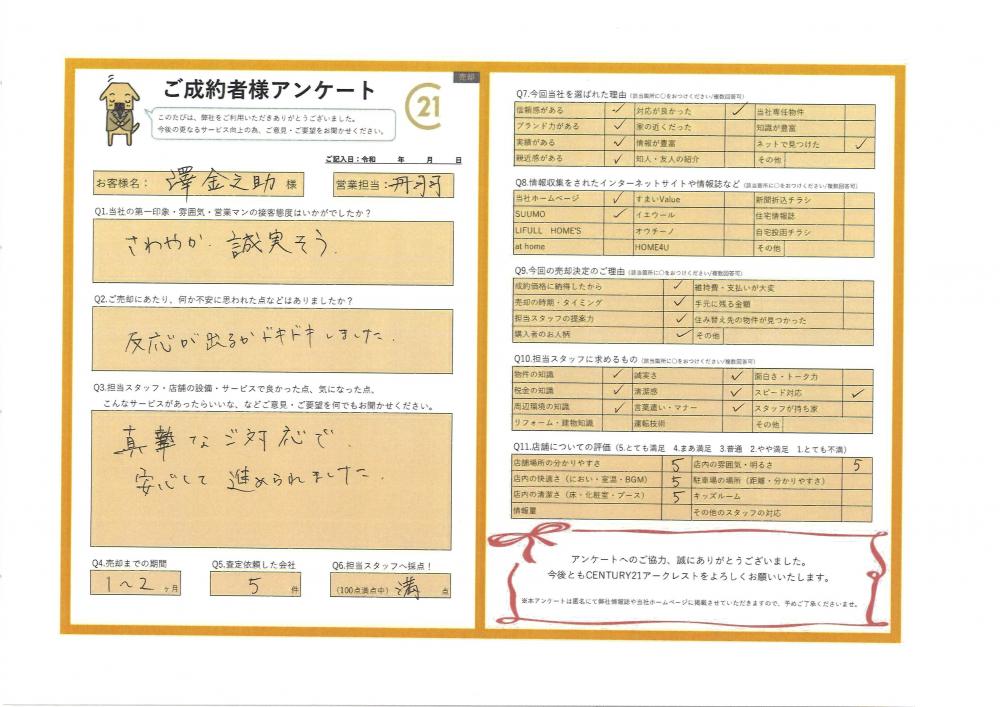 売却
ご成約者様アンケート
21
このたびは、弊社をご利用いただきありがとうございました。
今後の更なるサービス向上の為、ご意見・ご要望をお聞かせください。
ご記入日：令和　年　月　日
お客様名：澤 金之助 様　営業担当：丹羽
Q1.当社の第一印象・雰囲気・営業マンの接客態度はいかがでしたか？
さわやか. 誠実そう.
Q2.ご売却にあたり、何か不安に思われた点などはありましたか？
反応が出るかドキドキしました.
Q3.担当スタッフ・店舗の設備・サービスで良かった点、気になった点、
こんなサービスがあったらいいな、などご意見・ご要望を何でもお聞かせください。
真摯なご対応で.
安心して進められました.
Q4.売却までの期間　Q5.査定依頼した会社　Q6.担当スタッフへ採点！
1～2 ヶ月　5 件　(100点満点中) 満 点
Q7.今回当社を選ばれた理由（該当箇所に○をおつけください/複数回答可）
信頼感がある ✓ 対応が良かった ✓ 当社専任物件
ブランド力がある ✓ 家の近くだった 知識が豊富
実績がある ✓ 情報が豊富 ネットで見つけた ✓
親近感がある ✓ 知人・友人の紹介 その他
Q8.情報収集をされたインターネットサイトや情報誌など（該当箇所に○をおつけください/複数回答可）
当社ホームページ ✓ すまいValue 新聞折込チラシ
SUUMO ✓ イエウール 住宅情報誌
LIFULL HOME'S オウチーノ 自宅投函チラシ
at home HOME4U その他
Q9.今回の売却決定のご理由（該当箇所に○をおつけください/複数回答可）
成約価格に納得したから ✓ 維持費・支払いが大変
売却の時期・タイミング ✓ 手元に残る金額
担当スタッフの提案力 ✓ 住み替え先の物件が見つかった
購入者のお人柄 ✓ その他
Q10.担当スタッフに求めるもの（該当箇所に○をおつけください/複数回答可）
物件の知識 ✓ 誠実さ ✓ 面白さ・トーク力
税金の知識 ✓ 清潔感 ✓ スピード対応 ✓
周辺環境の知識 ✓ 言葉遣い・マナー ✓ スタッフが持ち家
リフォーム・建物知識 運転技術 その他
Q11.店舗についての評価（5.とても満足 4.まあ満足 3.普通 2.やや満足 1.とても不満）
店舗場所の分かりやすさ 5 店内の雰囲気・明るさ 5
店内の快適さ（におい・室温・BGM） 5 駐車場の場所（距離・分かりやすさ）
店内の清潔さ（床・化粧室・ブース） 5 キッズルーム
情報量 その他のスタッフの対応
アンケートへのご協力、誠にありがとうございました。
今後ともCENTURY21アークレストをよろしくお願いいたします。
※本アンケートは匿名にて弊社情報誌や当社ホームページに掲載させていただきますので、予めご了承くださいませ。